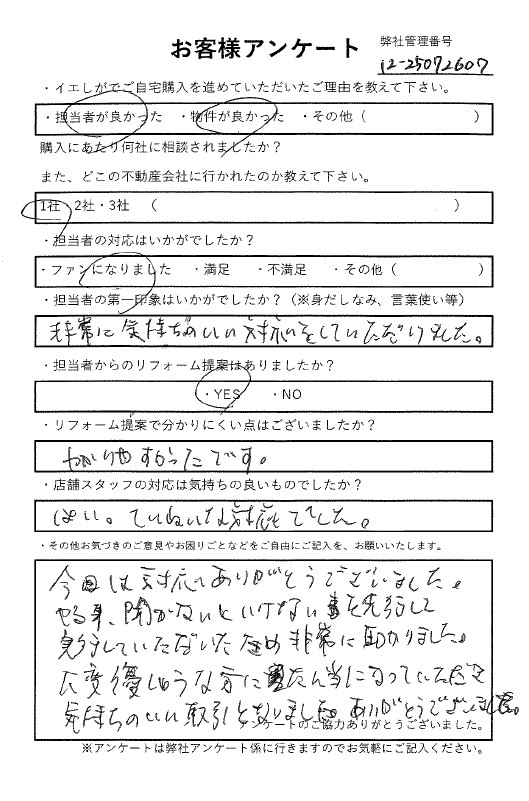 お客様アンケート
弊社管理番号
12-25072607
・イエしがでご自宅購入を進めていただいたご理由を教えて下さい。
・担当者が良かった ・物件が良かった ・その他（ ）
購入にあたり何社に相談されましたか？
また、どこの不動産会社に行かれたのか教えて下さい。
1社 2社・3社 （ ）
・担当者の対応はいかがでしたか？
・ファンになりました ・満足 ・不満足 ・その他（ ）
・担当者の第一印象はいかがでしたか？（※身だしなみ、言葉使い等）
非常に気持ちのいい対応をしていただけました。
・担当者からのリフォーム提案はありましたか？
・YES ・NO
・リフォーム提案で分かりにくい点はございましたか？
わかりやすかったです。
・店舗スタッフの対応は気持ちの良いものでしたか？
はい。ていねいな対応でした。
・その他お気づきのご意見やお困りごとなどをご自由にご記入を、お願いいたします。
今回は対応ありがとうございました。
やる事、聞かないといけない事を先行して
実行していただいたため非常に助かりました。
大変優しゅうな方に担当になっていただき
気持ちのいい取引となりました。ありがとうございました。
ケートのご協力ありがとうございました。
※アンケートは弊社アンケート係に行きますのでお気軽にご記入ください。